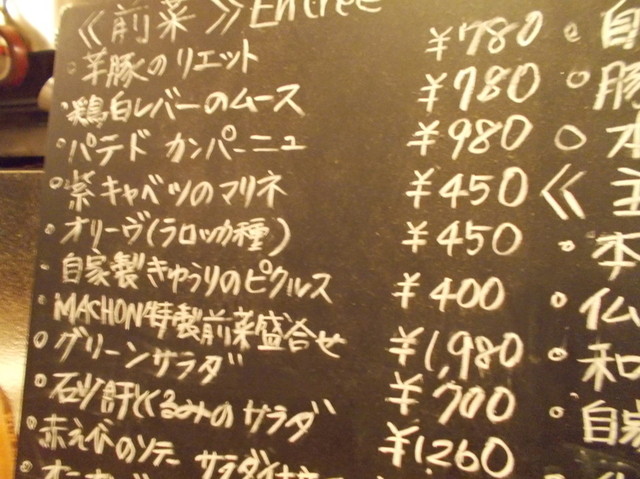 《前菜》Entrée
芋豚のリエット ¥780
鶏白レバーのムース ¥780
パテド カンパーニュ ¥980
紫キャベツのマリネ ¥450
オリーヴ(ラロッカ種) ¥450
自家製きゅうりのピクルス ¥400
MACHON特製前菜盛合せ ¥1,980
グリーンサラダ ¥700
くるみのサラダ ¥1,260
赤えびのソテー サラダ
自
豚
本
《主
本
仏
和
自家